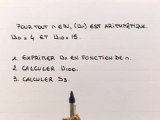 POUR TOUT n ∈ ℕ, (Un) EST ARITHMÉTIQUE.
U0 = 4 ET U10 = 15.
1. EXPRIMER Un EN FONCTION DE n.
2. CALCULER U100.
3. CALCULER